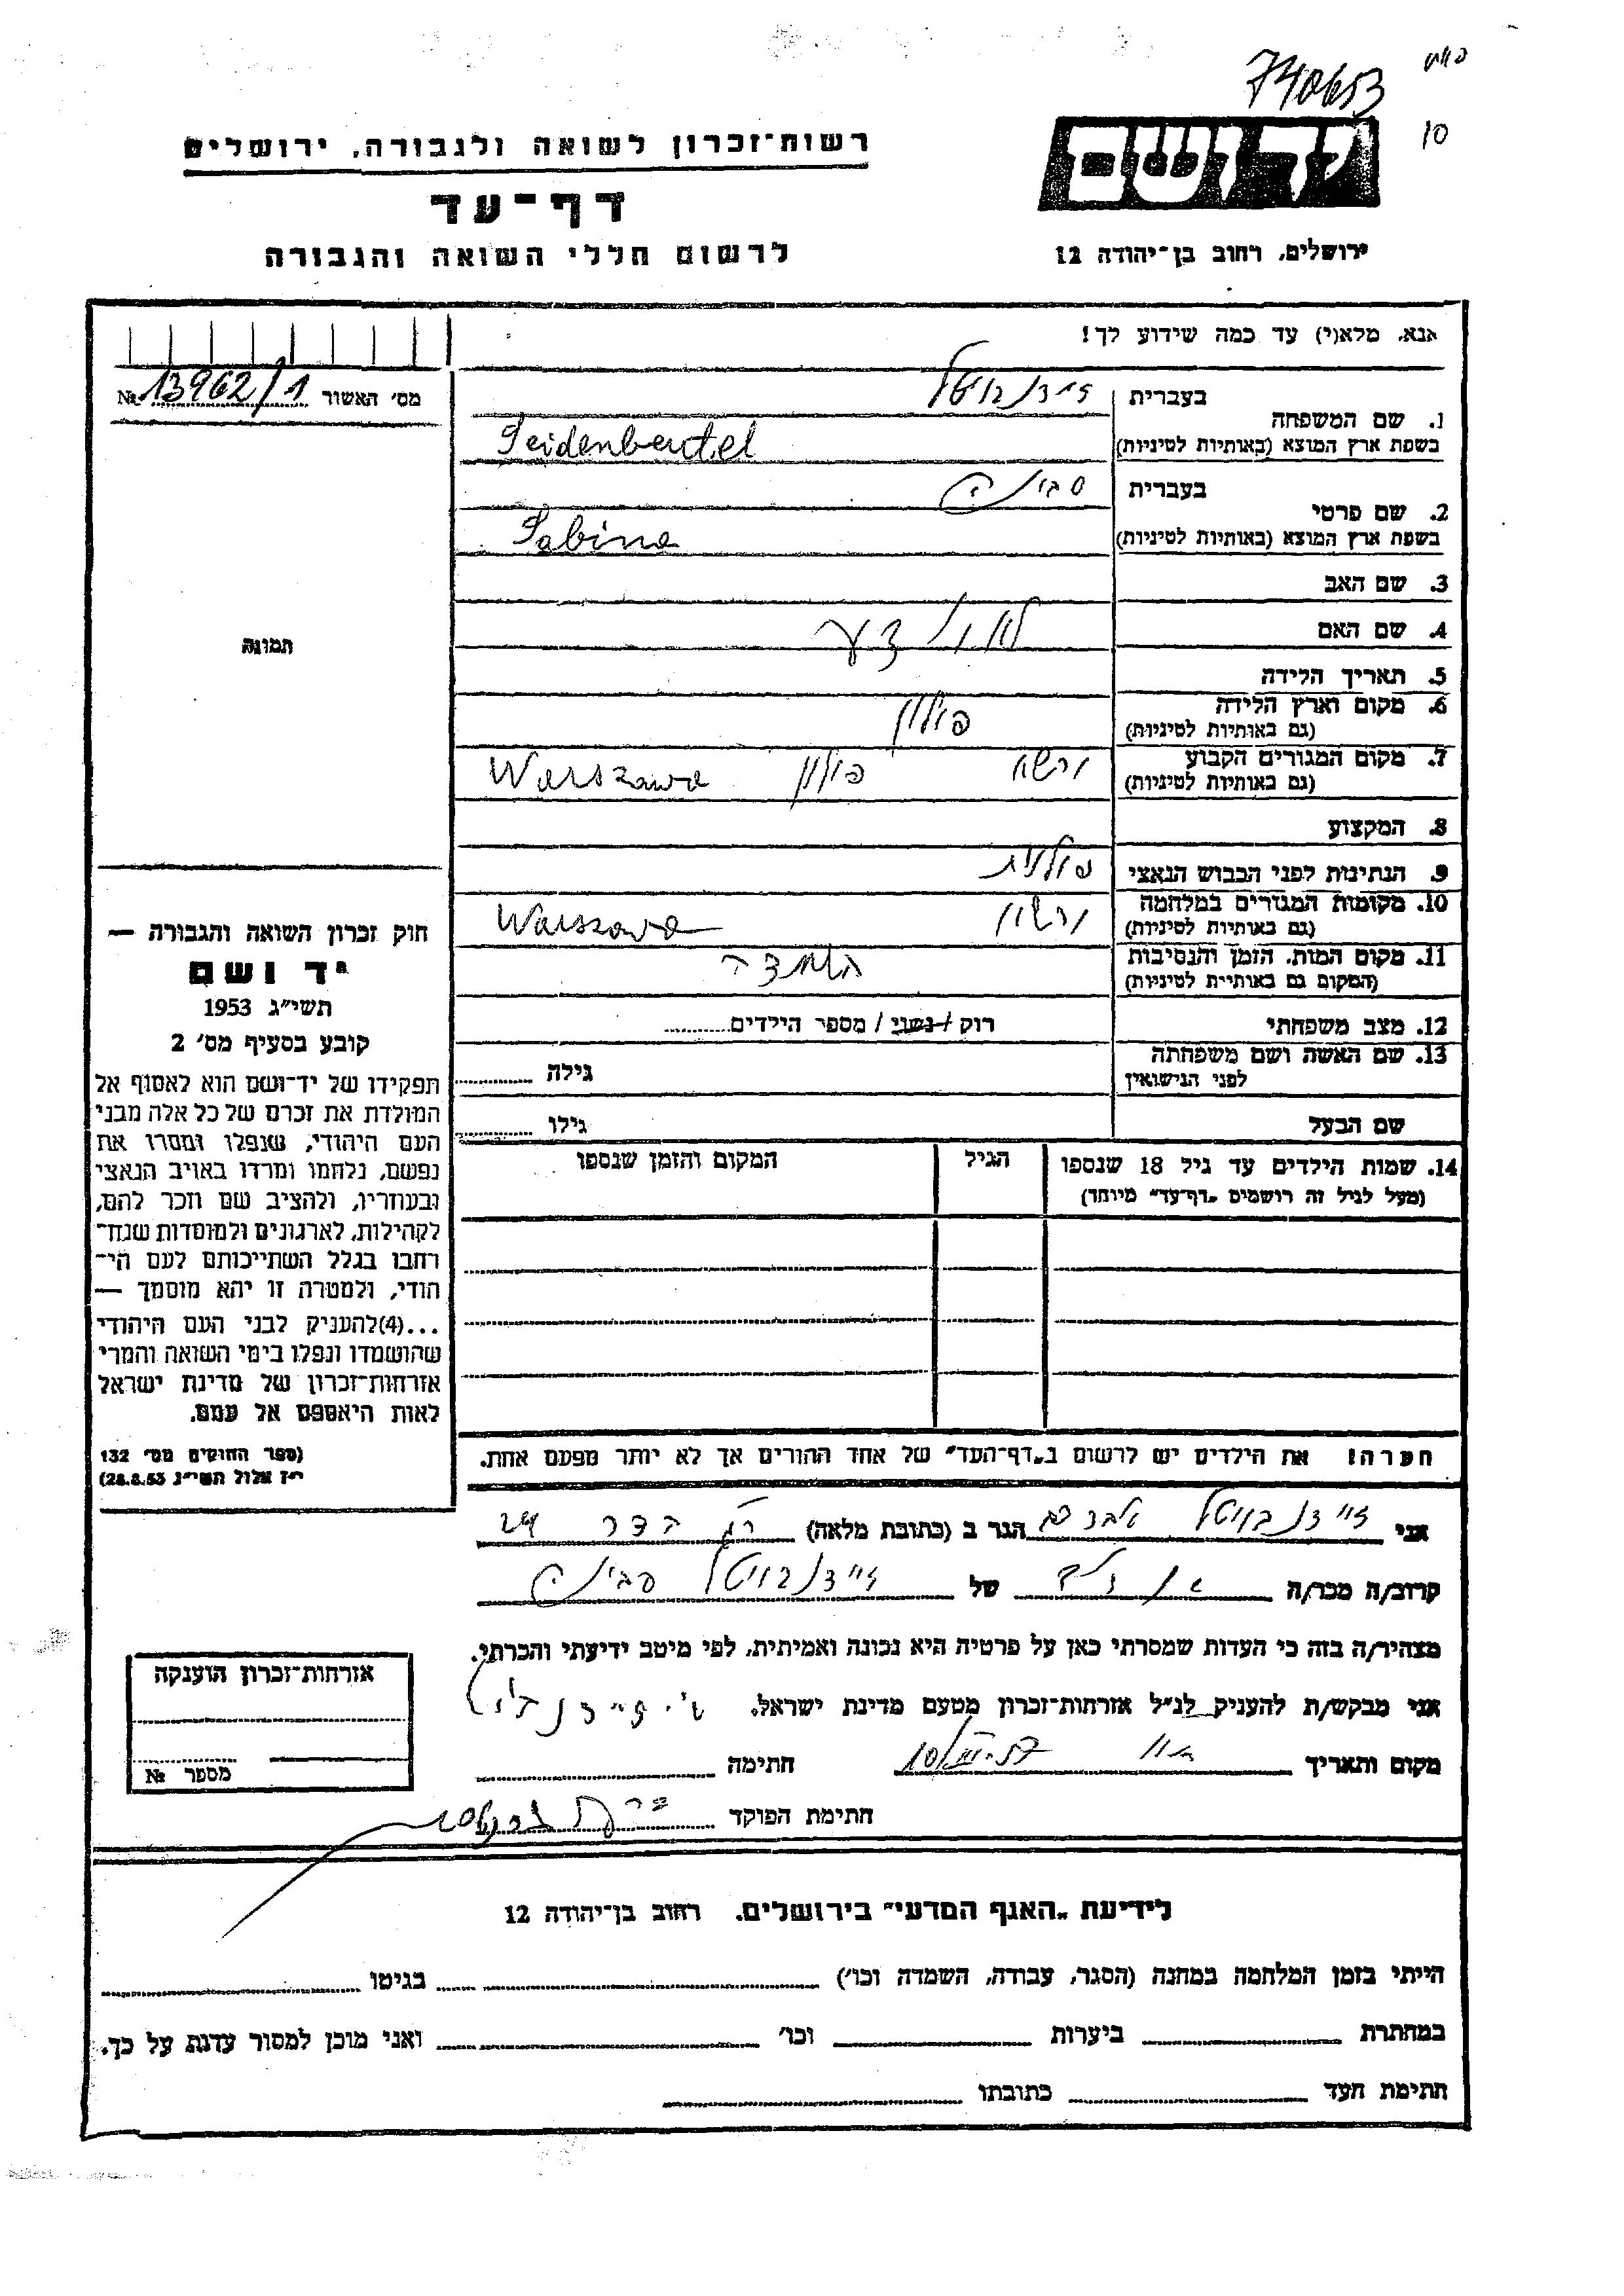 740653
10
רשות־זכרון לשואה ולגבורה, ירושלים
יד ושם
דף־עד
לרשום חללי השואה והגבורה
ירושלים, רחוב בן־יהודה 12
אנא, מלא(י) עד כמה שידוע לך!
מס׳ האשור № 13962/1
1. שם המשפחה
בעברית זיידנבויטל
בשפת ארץ המוצא (באותיות לטיניות) Seidenbeutel
2. שם פרטי
בעברית סבינה
בשפת ארץ המוצא (באותיות לטיניות) Sabina
3. שם האב
4. שם האם לא נודע
תמונה
5. תאריך הלידה
6. מקום וארץ הלידה פולין
(גם באותיות לטיניות)
7. מקום המגורים הקבוע ורשא פולין Warszawa
(גם באותיות לטיניות)
8. המקצוע
9. הנתינות לפני הכבוש הנאצי פולנית
10. מקומות המגורים במלחמה ורשא Warszawa
(גם באותיות לטיניות)
11. מקום המות, הזמן והנסיבות השמדה
(המקום גם באותיות לטיניות)
12. מצב משפחתי רוק / נשוי / מספר הילדים
13. שם האשה ושם משפחתה גילה
לפני הנישואין
שם הבעל גילו
14. שמות הילדים עד גיל 18 שנספו הגיל המקום והזמן שנספו
(מעל לגיל זה רושמים „דף־עד״ מיוחד)
חוק זכרון השואה והגבורה —
יד ושם
תשי״ג 1953
קובע בסעיף מס׳ 2
תפקידו של יד־ושם הוא לאסוף אל
המולדת את זכרם של כל אלה מבני
העם היהודי, שנפלו ומסרו את
נפשם, נלחמו ומרדו באויב הנאצי
ובעוזריו, ולהציב שם וזכר להם,
לקהילות, לארגונים ולמוסדות שנח־
רחבו בגלל השתייכותם לעם הי־
הודי, ולמטרה זו יהא מוסמך —
...(4)להעניק לבני העם היהודי
שהושמדו ונפלו בימי השואה והמרי
אזרחות־זכרון של מדינת ישראל
לאות היאספם אל עמם.
(ספר החוקים מס׳ 132
י״ז אלול תשי״ג 28.8.53)
הערה! את הילדים יש לרשום ב„דף־העד״ של אחד ההורים אך לא יותר מפעם אחת.
אני זיידנבויטל אברהם הגר ב (כתובת מלאה)
קרוב/ה מכר/ה של זיידנבויטל סבינה
מצהיר/ה בזה כי העדות שמסרתי כאן על פרטיה היא נכונה ואמיתית, לפי מיטב ידיעתי והכרתי.
אני מבקש/ת להעניק לנ״ל אזרחות־זכרון מטעם מדינת ישראל.
מקום ותאריך חתימה
חתימת הפוקד
אזרחות־זכרון הוענקה
מספר №
לידיעת „האגף המדעי״ בירושלים, רחוב בן־יהודה 12
הייתי בזמן המלחמה במחנה (הסגר, עבודה, השמדה וכו׳) בגיטו
במחתרת ביערות וכו׳ ואני מוכן למסור עדות על כך.
חתימת העד כתובתו